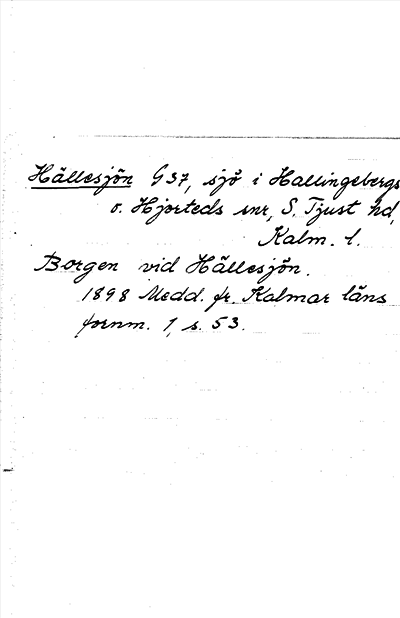 Hällesjön G 37, sjö i Hallingebergs
o. Hjorteds snr, S. Tjust hd,
Kalm. l.
Borgen vid Hällesjön.
1898 Medd. fr. Kalmar läns
fornm. 1, s. 53.